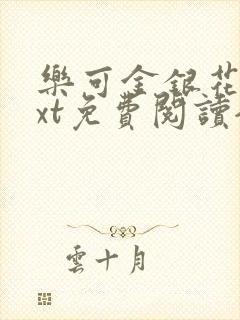 樂可金銀花
xt免費閱讀
雲十月